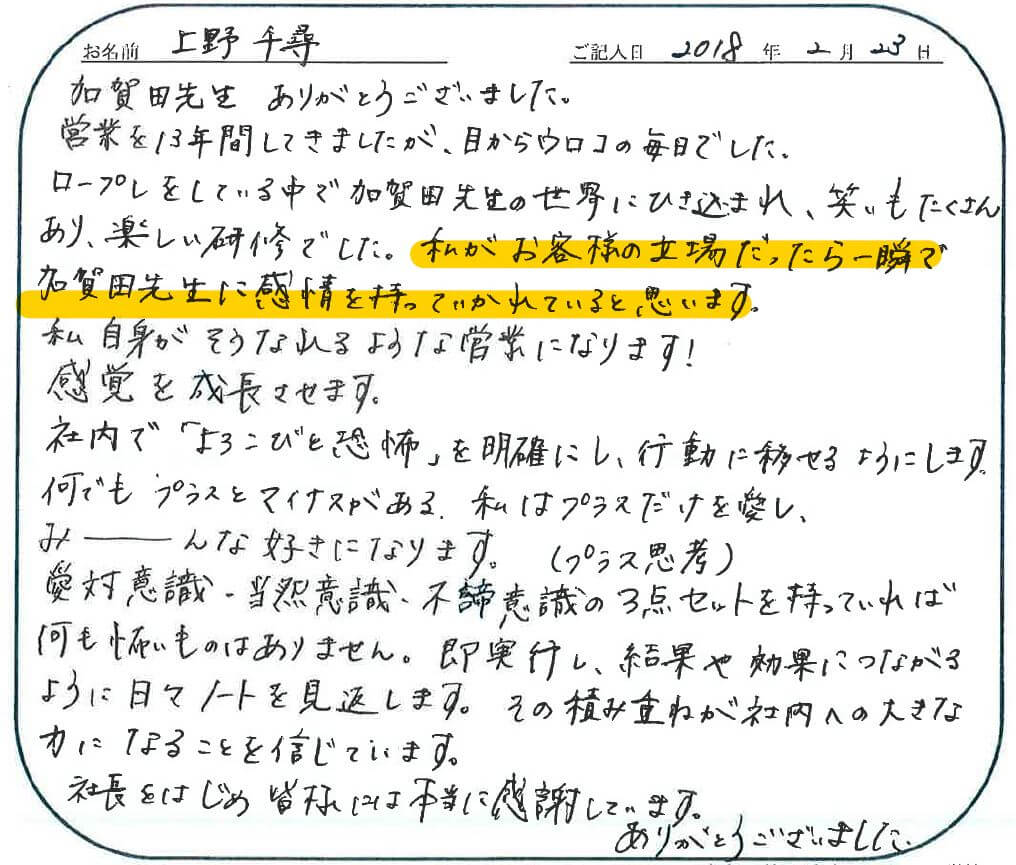 お名前 上野 千尋 ご記入日 2018 年 2 月 23 日
加賀田先生 ありがとうございました。
営業を13年間してきましたが、目からウロコの毎日でした。
ロープレをしている中で加賀田先生の世界にひき込まれ、笑いもたくさん
あり、楽しい研修でした。私がお客様の立場だったら一瞬で
加賀田先生に感情を持っていかれていると思います。
私自身がそうなれるような営業になります!
感覚を成長させます。
社内で「よろこびと恐怖」を明確にし、行動に移せるようにします。
何でもプラスとマイナスがある。私はプラスだけを愛し、
み――んな好きになります。(プラス思考)
愛対意識・当然意識・不諦意識の3点セットを持っていれば
何も怖いものはありません。即実行し、結果や効果につながる
ように日々ノートを見返します。その積み重ねが社内への大きな
力になることを信じています。
社長をはじめ皆様には本当に感謝しています。
ありがとうございました。